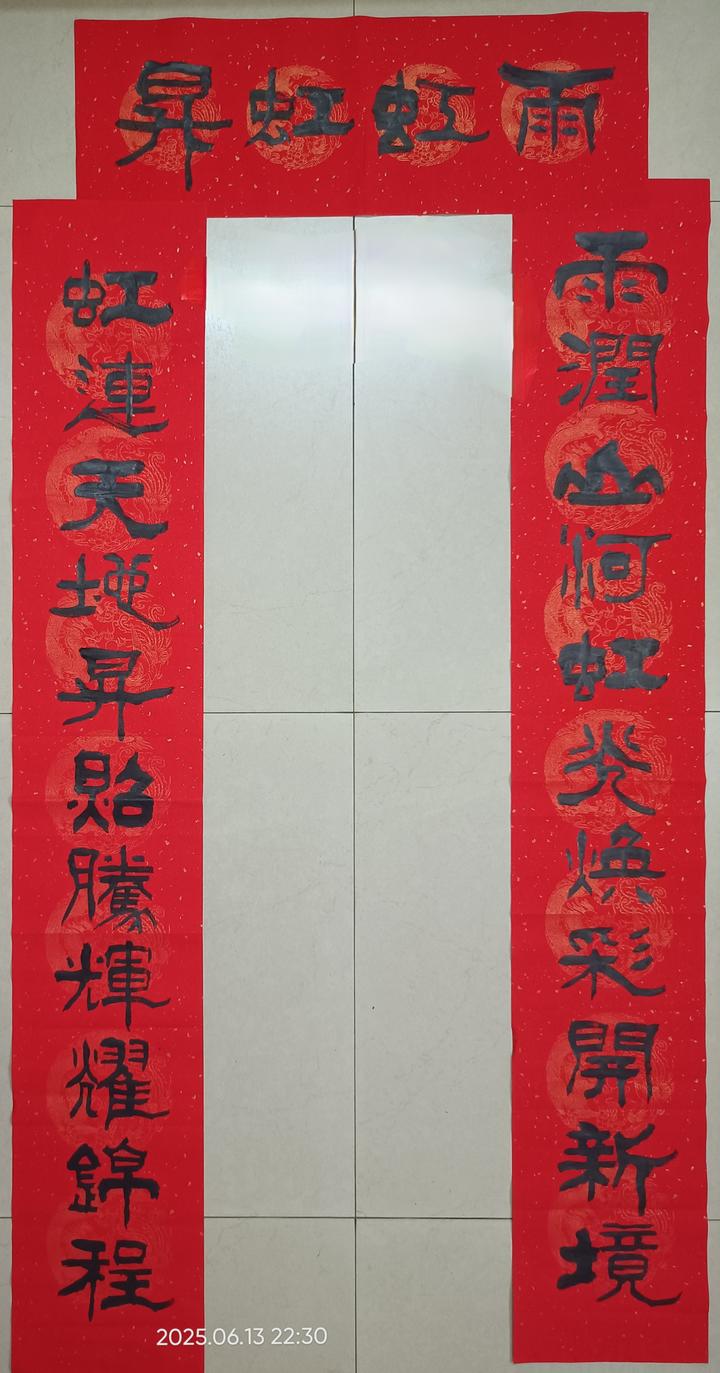 雨虹虹昇
雨潤山河虹光焕彩開新境
虹連天地昇貽騰輝耀錦程
2025.06.13 22:30